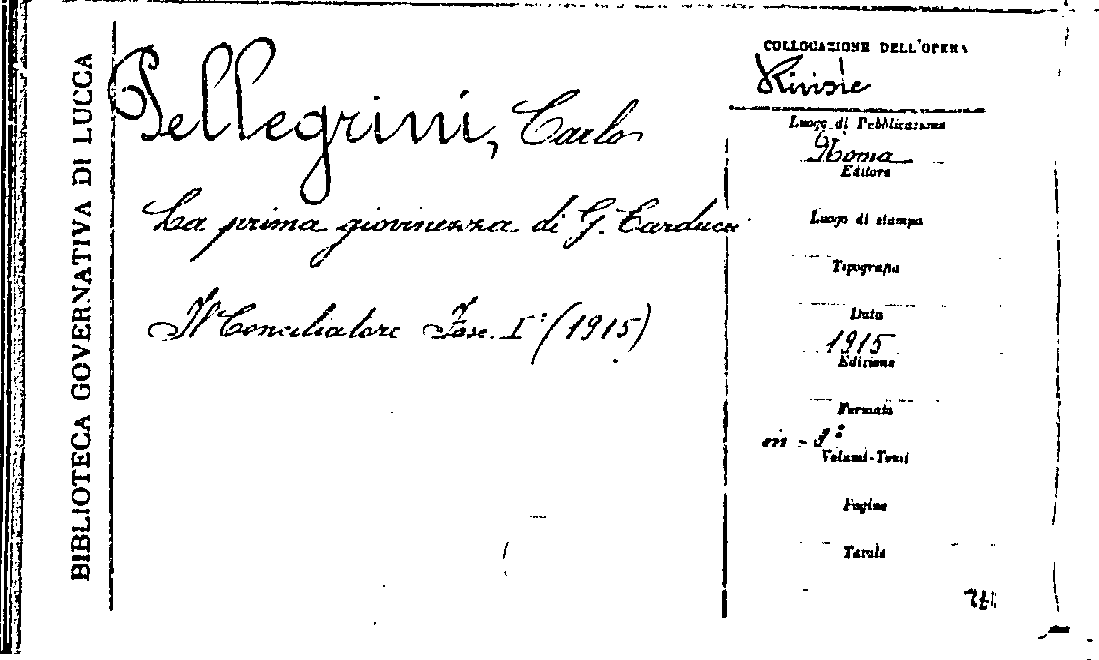 BIBLIOTECA GOVERNATIVA DI LUCCA
Pellegrini, Carlo
La prima giovinezza di G. Carducci
Il Conciliatore Fasc. I° (1915)
COLLOCAZIONE DELL'OPERA
Riviste
Luogo di Pubblicazione
Roma
Editore
Luogo di stampa
Tipografia
Data
1915
Edizione
Formato
in - 8°
Volumi-Tomi
Pagine
Tavole